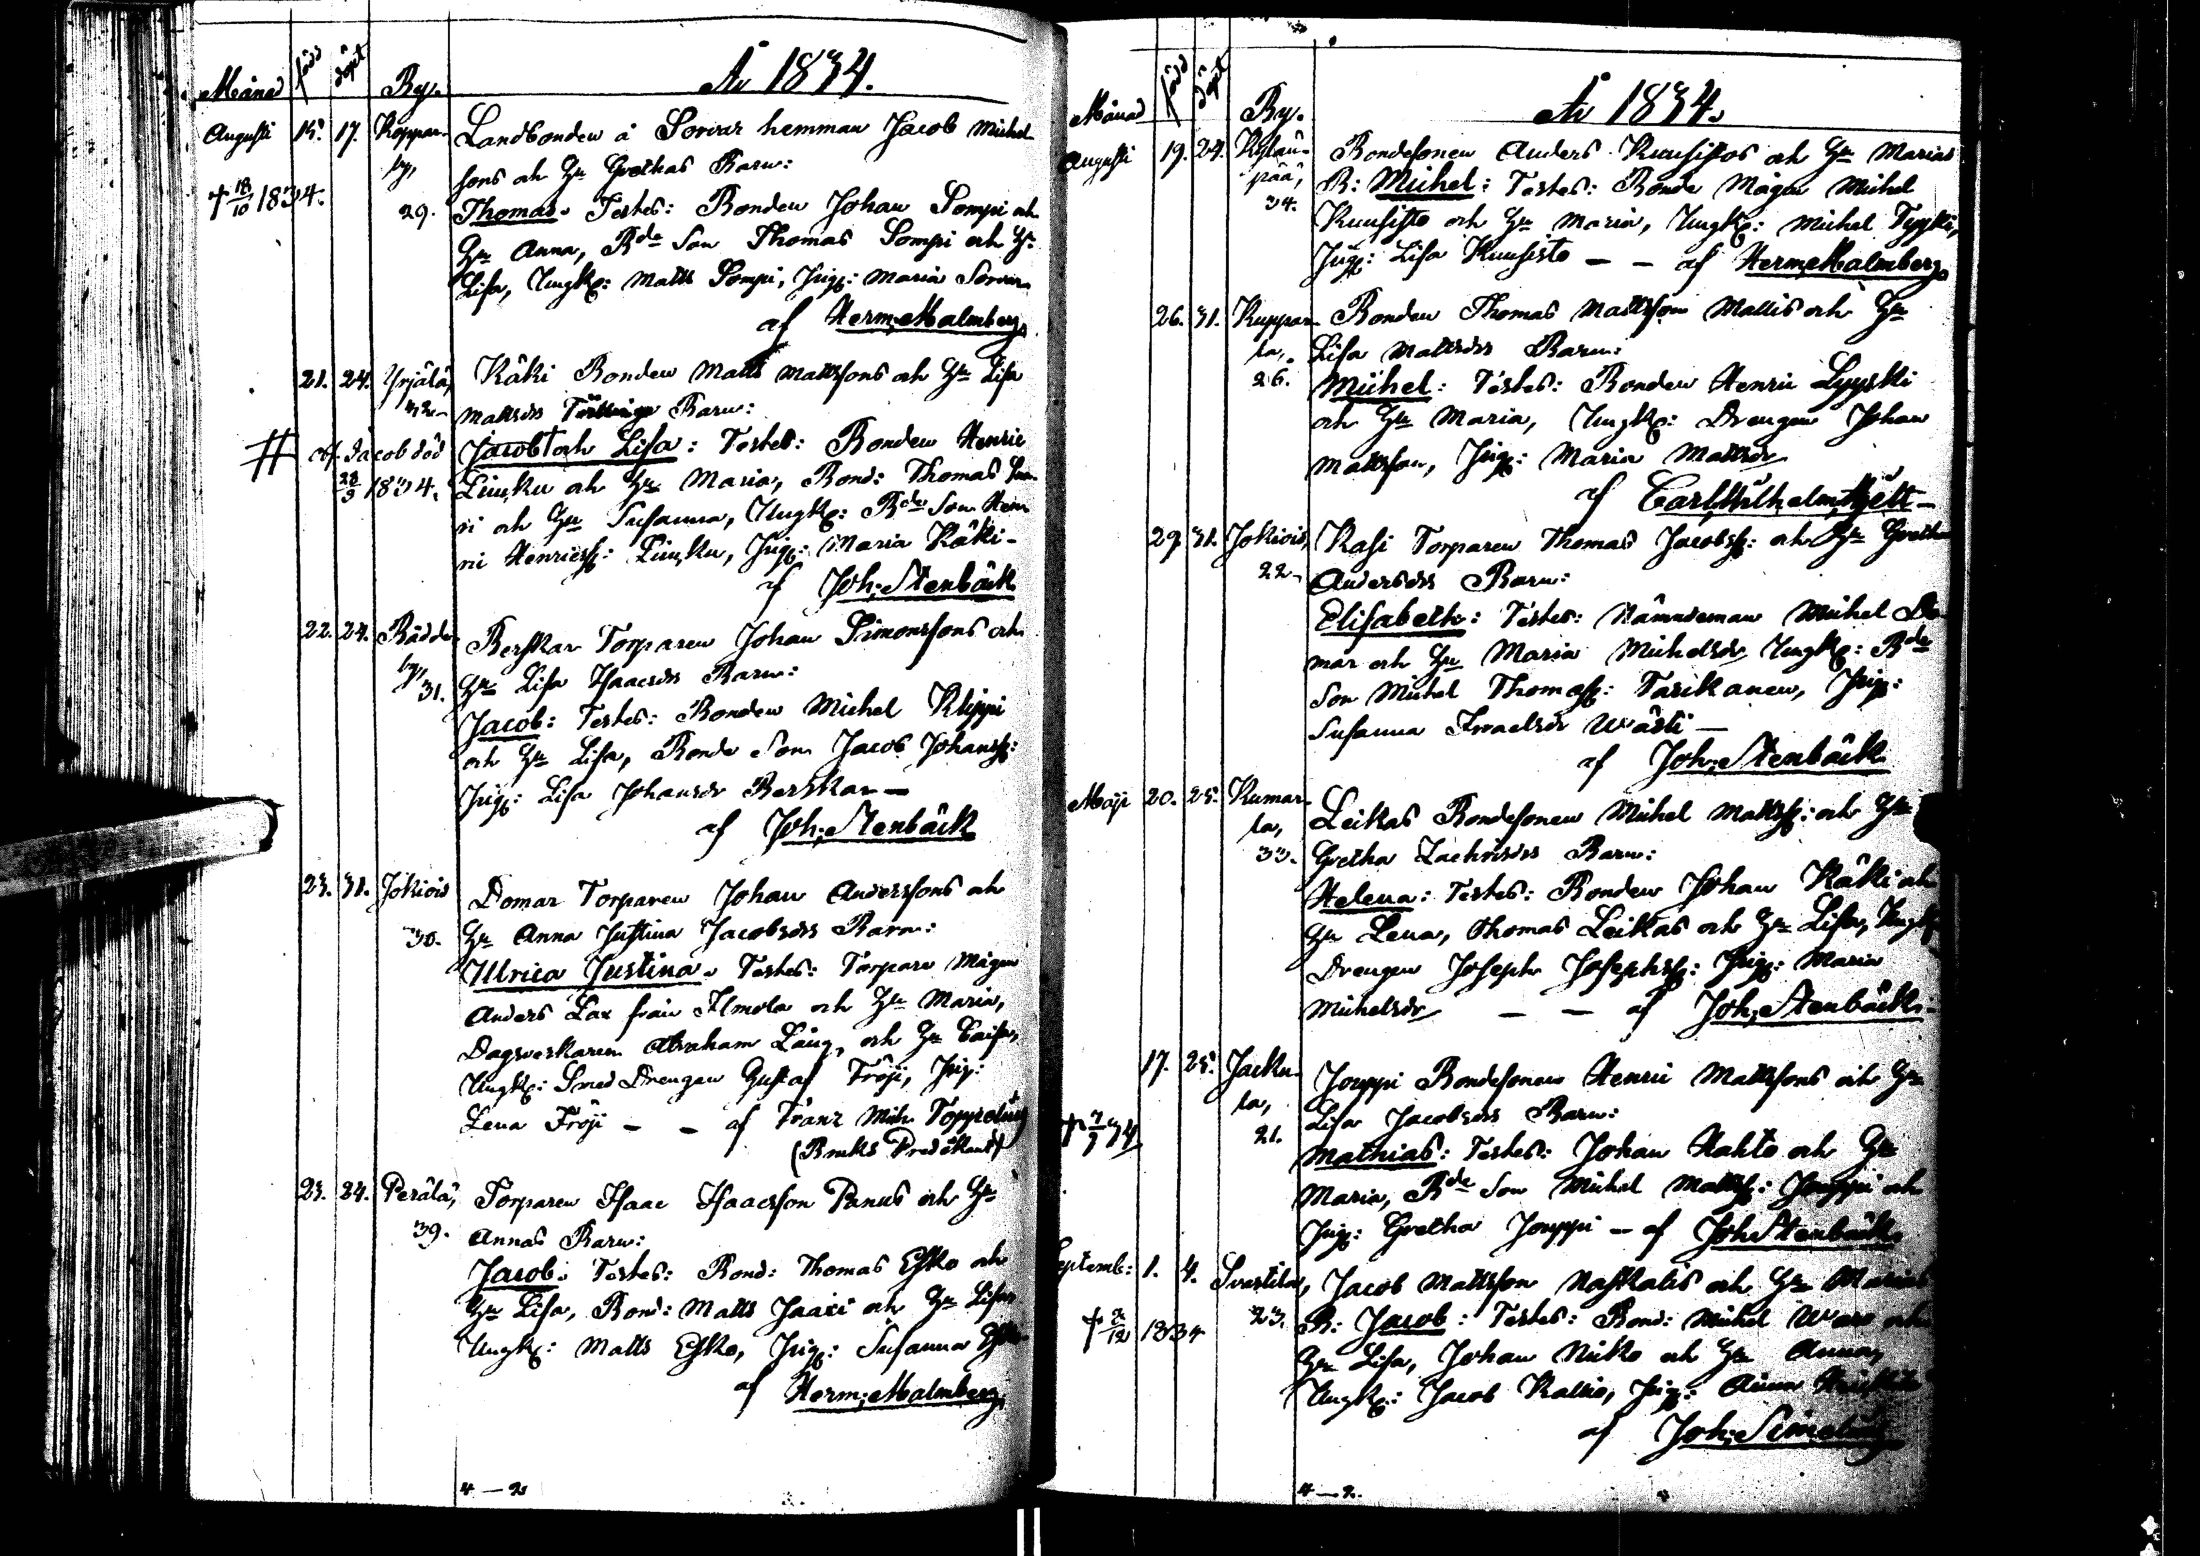 Månad född döpt By. År 1834.
Augusti 15. 17. Koppar- Landbonden å Sorvar hemman Jacob Michel-
by, sons och Hu Grethas Barn:
† 18/10 1834. 29. Thomas. Testes: Bonden Johan Sompi och
Hu Anna, Bde Son Thomas Sompi och Hu
Lisa, Ungk: Matts Sompi, Pig: Maria Sorvar
af Herm: Malmberg
21. 24. Yrjälä, Käki Bonden Matts Mattssons och Hu Lisa
42. Mattsdrs Tvillinge Barn:
# Jacob död Jacob † och Lisa: Testes: Bonden Henric
23/9 1834. Liuku och Hu Maria, Bond: Thomas
och Hu Susanna, Ungk: Bde Son Hen
ri Henricss: Liuku, Pig: Maria Käki -
af Joh: Stenbäck
22. 24. Rädde- Berskar Torparen Johan Simonssons och
by, 31. Hu Lisa Isaacsdrs Barn:
Jacob: Testes: Bonden Michel Klippi
och Hu Lisa, Bonde Son Jacob Johanss:
Pig: Lisa Johansdr Berskar —
af Joh: Stenbäck
23. 31. Jokiois Domar Torparen Johan Anderssons och
30. Hu Anna Justina Jacobsdrs Barn:
Ulrica Justina. Testes: Torpare Mågen
Anders Lax från Ilmola och Hu Maria,
Dagsverkaren Abraham Lång, och Hu Caisa,
Ungk: Smed Drengen Gustaf Fröji, Pig:
Lena Fröji — — af Franz Mich: Toppelius
(Bruks Predikant)
23. 24. Perälä, Torparen Isaac Isaacsson Panus och Hu
39. Annas Barn:
Jacob. Testes: Bond: Thomas Esko och
Hu Lisa, Bond: Matts Jaaxi och Hu Lisa
Ungk: Matts Esko, Pig: Susanna
af Herm: Malmberg
4 — 2
Månad född döpt By. År 1834.
Augusti 19. 24. Kylän- Bondesonen Anders Kuusistos och Hu Marias
pää, B: Michel: Testes: Bonde Mågen Michel
34. Kuusisto och Hu Maria, Ungk: Michel Tyyki,
Pig: Lisa Kuusisto — — af Herm: Malmberg
26. 31. Kuppar- Bonden Thomas Mattsson Mallis och Hu
la, Lisa Mattsdrs Barn:
26. Michel: Testes: Bonden Henric Lyyski
och Hu Maria, Ungk: Drengen Johan
Mattsson, Pig: Maria Mattsdr
af Carl Wilhelm
29 31. Jokiois Kasi Torparen Thomas Jacobss: och Hu Gretha
22. Andersdrs Barn:
Elisabeth: Testes: Nämndeman Michel Do
mar och Hu Maria Michelsdr Ungk: Bde
Son Michel Thomass: Tarikanen, Pig:
Susanna Israelsdr Wästi —
af Joh: Stenbäck
Maji 20. 25. Kumar- Leikas Bondesonen Michel Mattss: och Hu
la, 33. Gretha Zachrisdrs Barn:
Helena: Testes: Bonden Johan Käki och
Hu Lena, Thomas Leikas och Hu Lisa, Ungk:
Drengen Joseph Josephss: Pig: Maria
Michelsdr — — af Joh: Stenbäck
17. 25. Jacku- Jouppi Bondesonen Henric Mattssons och Hu
la, Lisa Jacobsdrs Barn:
† 7/7 34 21. Mathias: Testes: Johan Hahto och Hu
Maria, Bde Son Michel Mattss: Jouppi och
Pig: Gretha Jouppi — af Joh: Stenbäck
Septemb: 1. 4. Svartila, Jacob Mattsson Naskalis och Hu Marias
† 2/12 1834 23. B: Jacob: Testes: Bond: Michel Waro och
Hu Lisa, Johan Niko och Hu Anna,
Ungk: Jacob Kallio, Pig: Anna
af Joh: Simelius
4 — 2.